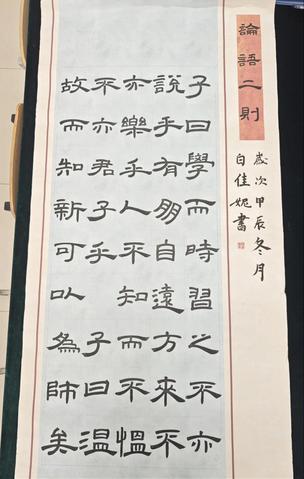 論語二則
歲次甲辰冬月
白佳妮書
子曰學而時習之不亦
說乎有朋自遠方來不
亦樂乎人不知而不慍
不亦君子乎 子曰溫
故而知新可以為師矣